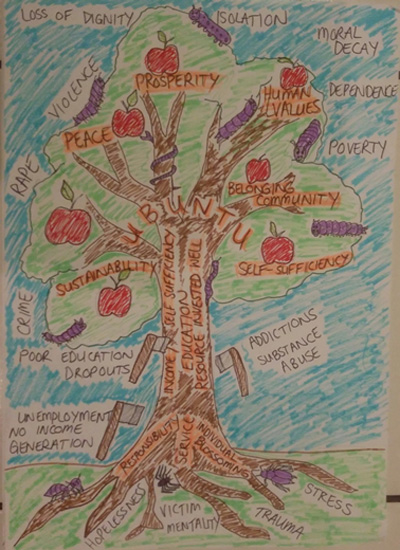 LOSS OF DIGNITY
ISOLATION
MORAL
DECAY
VIOLENCE
PROSPERITY
HUMAN
VALUES
DEPENDENCE
PEACE
POVERTY
RAPE
BELONGING
COMMUNITY
UBUNTU
SUSTAINABILITY
SELF-SUFFICIENCY
CRIME
INCOME / SELF SUFFICIENCY
EDUCATION
RESOURCE INVESTED WELL
POOR EDUCATION
DROPOUTS
ADDICTIONS
SUBSTANCE
ABUSE
UNEMPLOYMENT
NO INCOME
GENERATION
RESPONSIBILITY
SERVICE
INDIVIDUAL
BLOSSOMING
HOPELESSNESS
VICTIM
MENTALITY
TRAUMA
STRESS